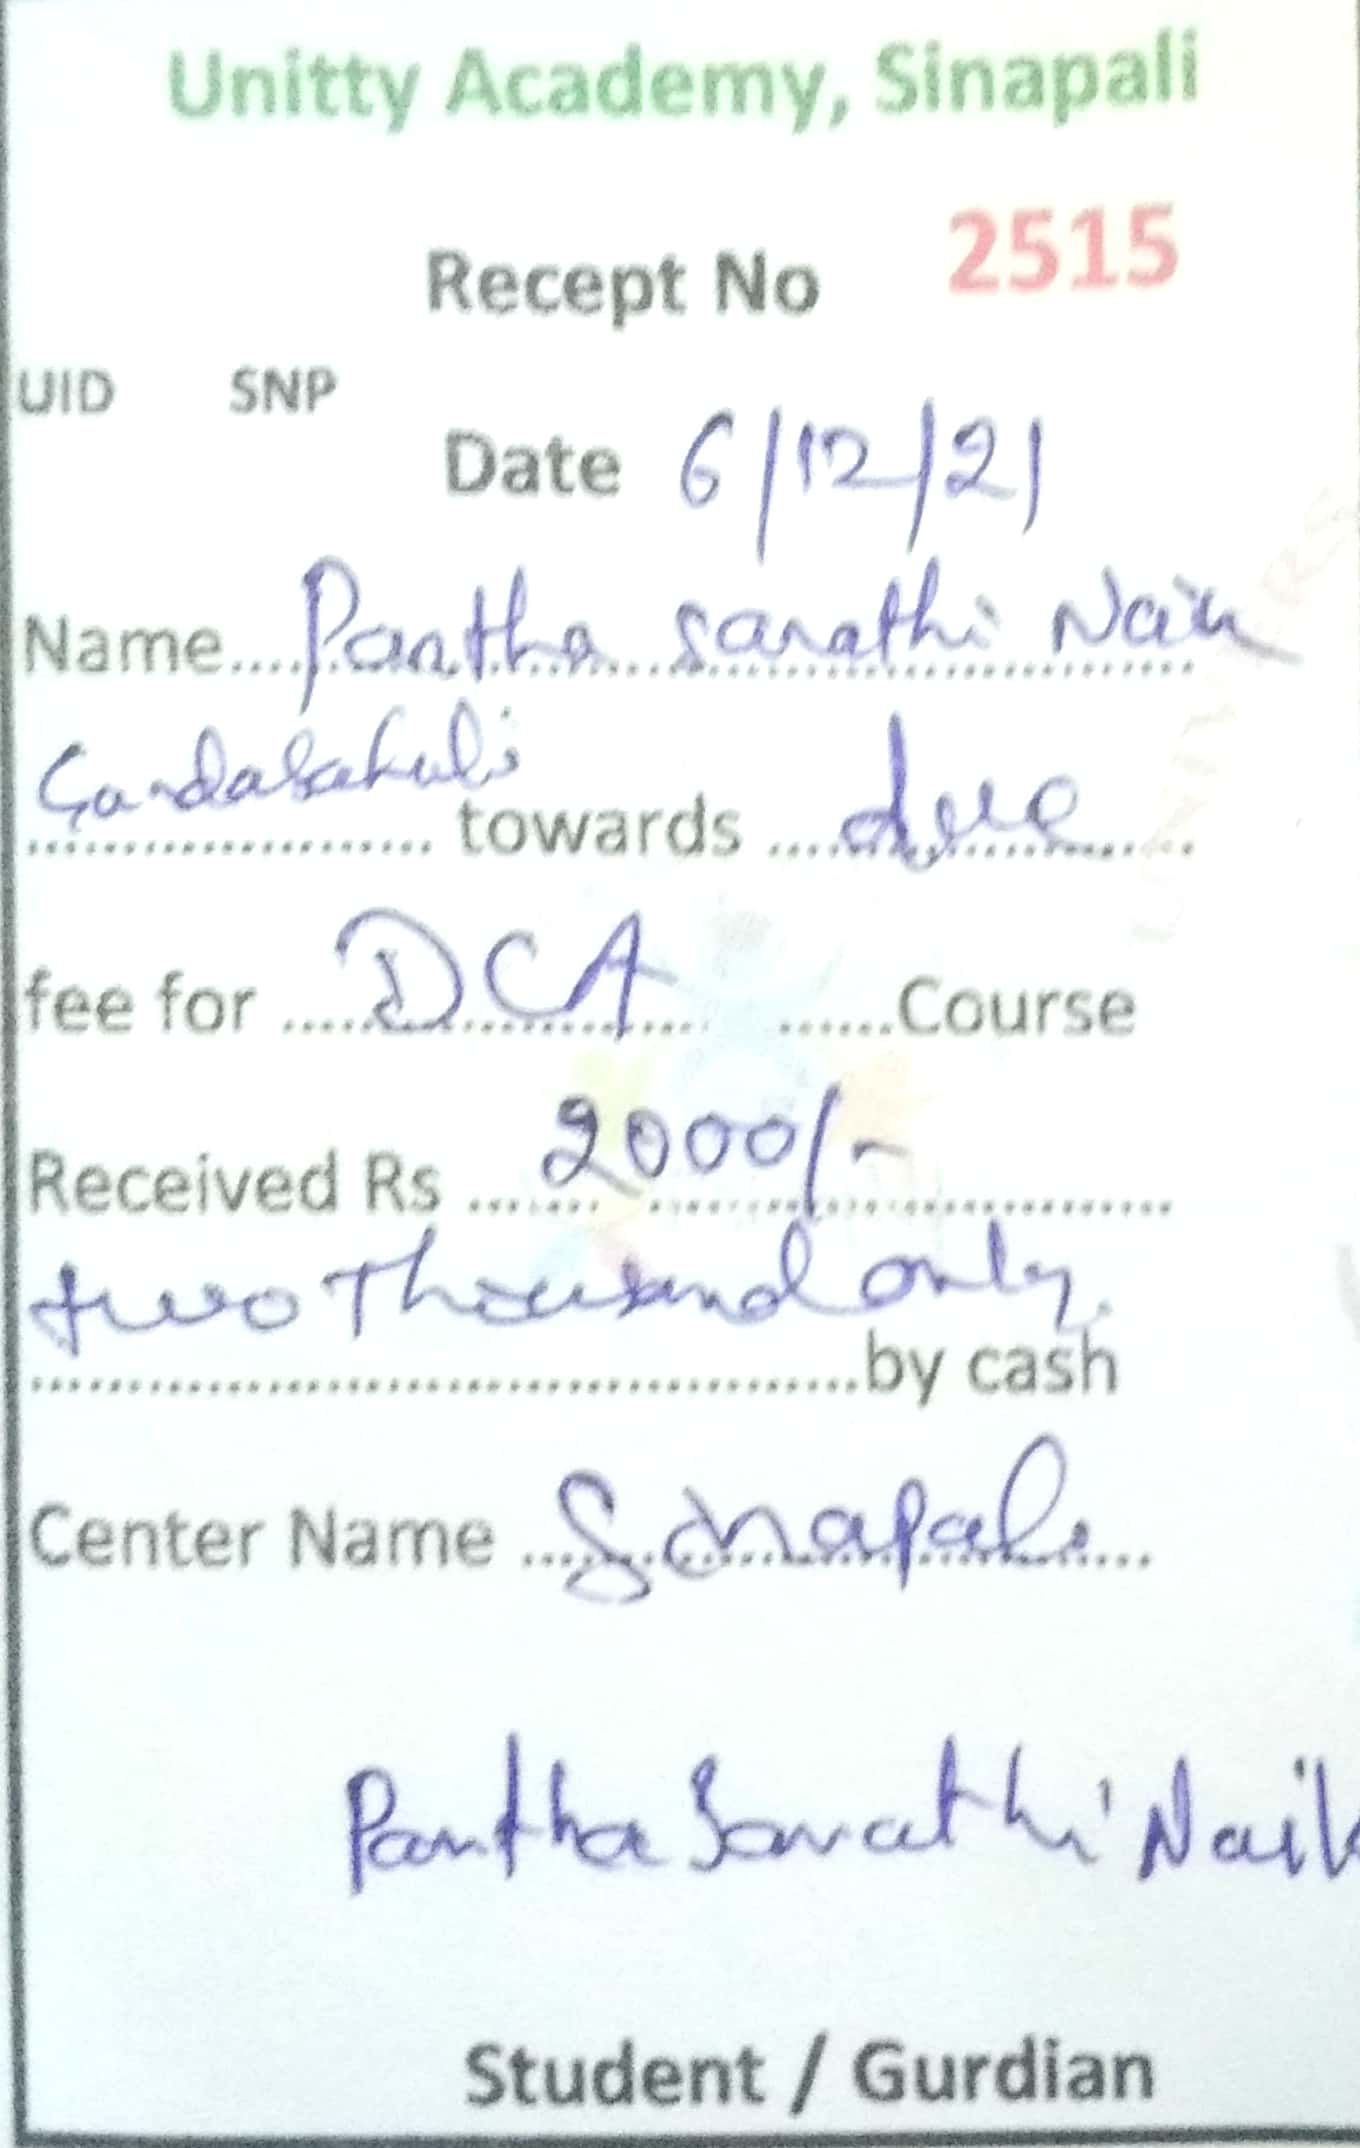 Unitty Academy, Sinapali
Recept No 2515
UID SNP
Date 6/12/21
Name.... Partha Sarathi Naik
.................... towards .... due
fee for ..... DCA ......Course
Received Rs ....... 2000/-
two Thousand only.
..................................by cash
Center Name ..... Sinapali
Partha Sarathi Naik
Student / Gurdian